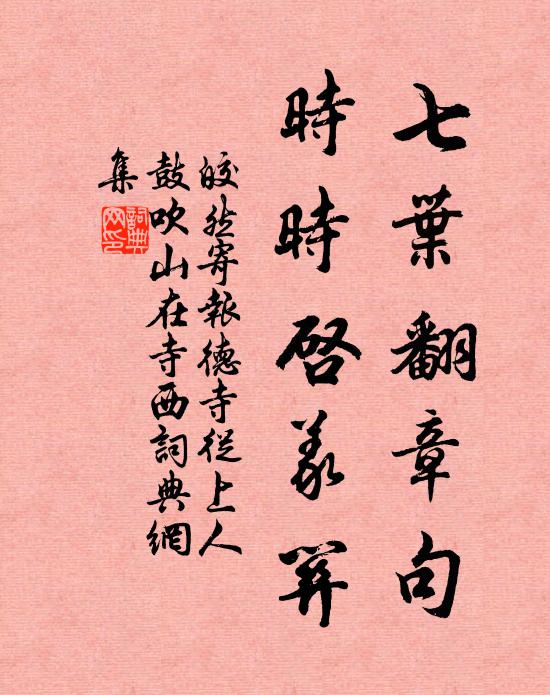 七葉翻章句
時時啓義關
皎然寄報德寺從上人
鼓吹山在寺西詞典網
集
詞典
网印